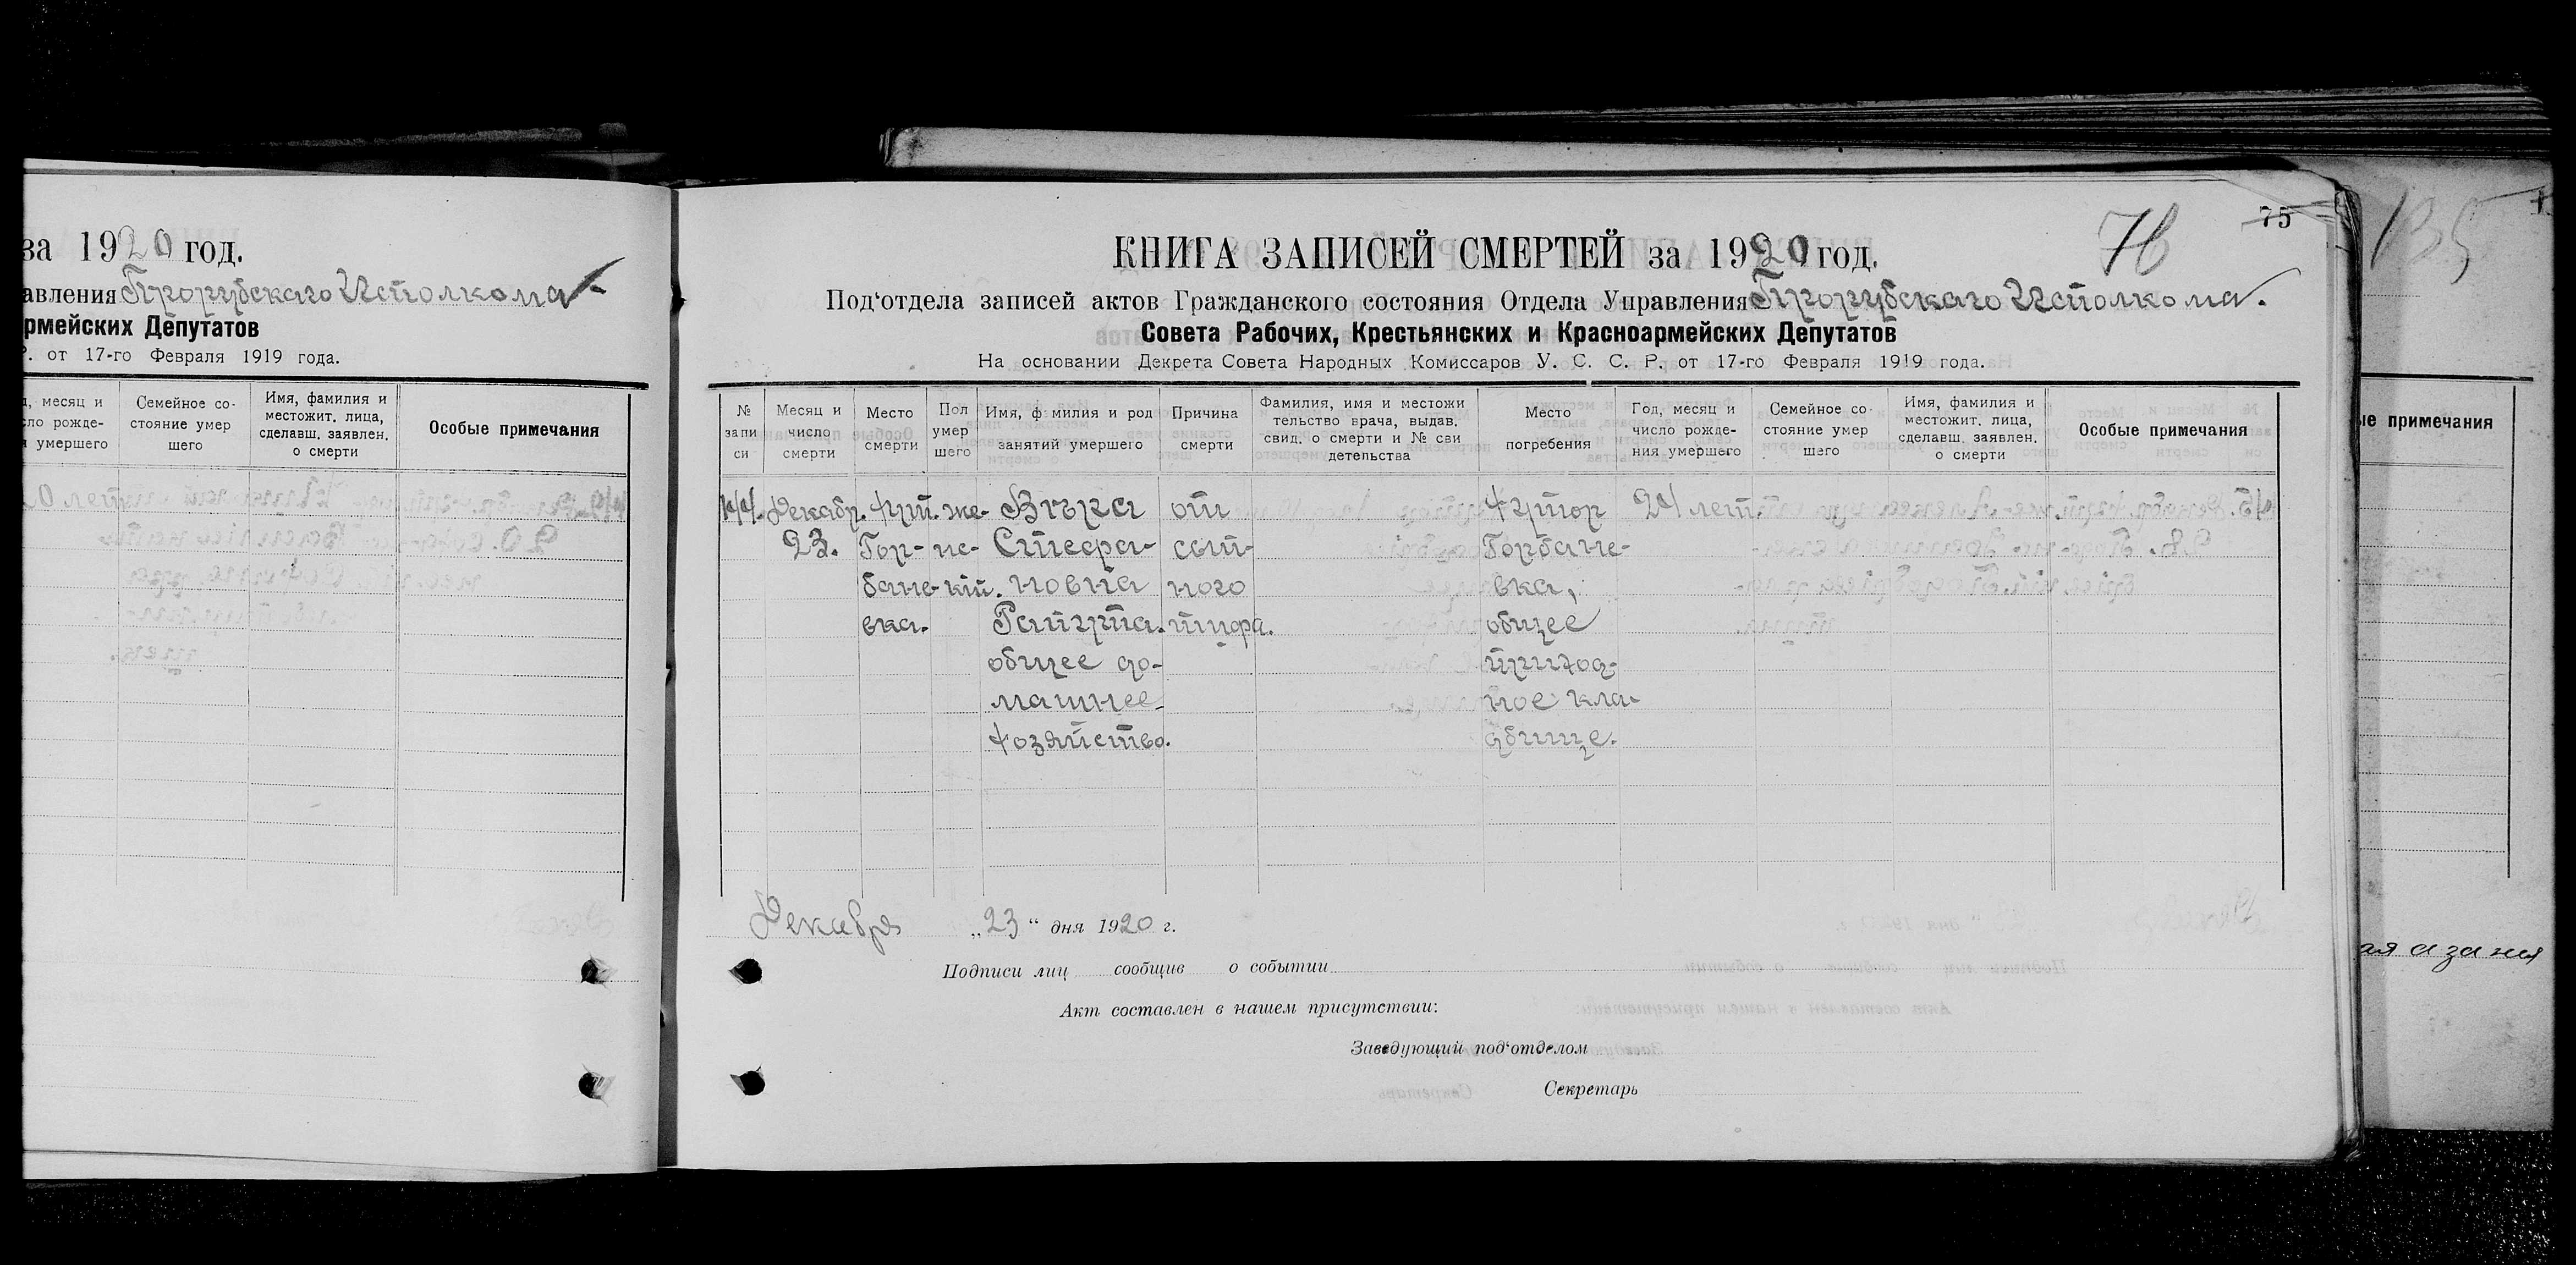 за 1920 год.
авления Прорубскаго Исполкома
рмейских Депутатов
Р. от 17-го Февраля 1919 года.
д, месяц и
сло рожде-
я умершего
Семейное со-
стояние умер
шего
Имя, фамилия и
местожит. лица,
сделавш. заявлен.
о смерти
Особые примечания
75
76
КНИГА ЗАПИСЕЙ СМЕРТЕЙ за 1920 год.
Под'отдела записей актов Гражданского состояния Отдела Управления Прорубскаго Исполкома.
Совета Рабочих, Крестьянских и Красноармейских Депутатов
На основании Декрета Совета Народных Комиссаров У. С. С. Р. от 17-го Февраля 1919 года.
№
запи
си
Месяц и
число
смерти
Место
смерти
Пол
умер
шего
Имя, ф милия и род
занятий умершего
Причина
смерти
Фамилия, имя и местожи
тельство врача, выдав.
свид. о смерти и № сви
детельства
Место
погребения
Год, месяц и
число рожде-
ния умершего
Семейное со
стояние умер
шего
Имя, фамилия и
местожит. лица,
сделавш. заявлен.
о смерти
Особые примечания
144.
Декабр.
23.
Хут.
Гор-
бане-
вка.
же-
нс-
кій.
Вѣра
Стефа-
новна
общее до-
машнее
хозяйство.
от
сып-
ного
тифа.
Хутор
Горбане-
вка,
общее
приход-
ное кла-
дбище.
24 лет.
Декабря „23" дня 1920 г.
Подписи лиц сообщив о событии
Акт составлен в нашем присутствии:
Заведующий под'отделом
Секретарь
135
ые примечания